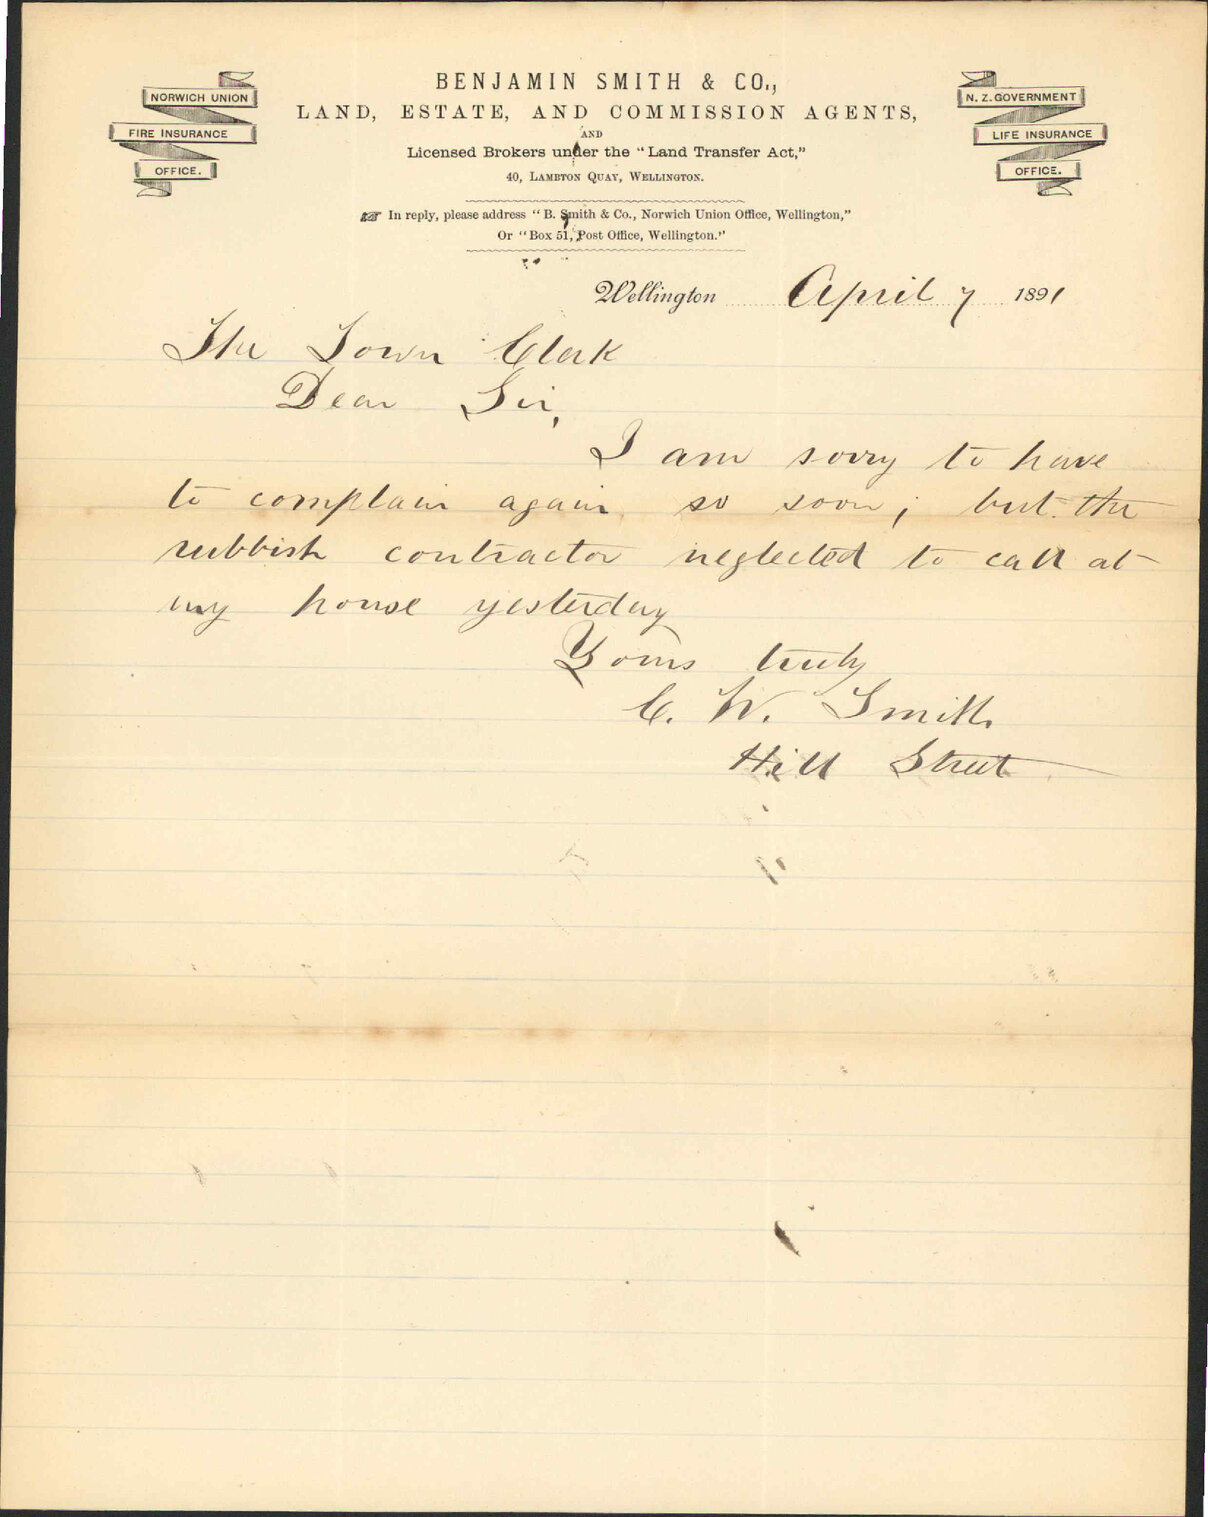 NORWICH UNION
FIRE INSURANCE
OFFICE.
BENJAMIN SMITH & CO.,
LAND, ESTATE, AND COMMISSION AGENTS,
AND
Licensed Brokers under the "Land Transfer Act,"
40, LAMBTON QUAY, WELLINGTON.
N. Z. GOVERNMENT
LIFE INSURANCE
OFFICE.
☞ In reply, please address "B. Smith & Co., Norwich Union Office, Wellington,"
Or "Box 51, Post Office, Wellington."
Wellington April 7 1891
The Town Clerk
Dear Sir,
I am sorry to have
to complain again so soon; but the
rubbish contractor neglected to call at
my house yesterday
Yours truly
C. W. Smith
Hill Street